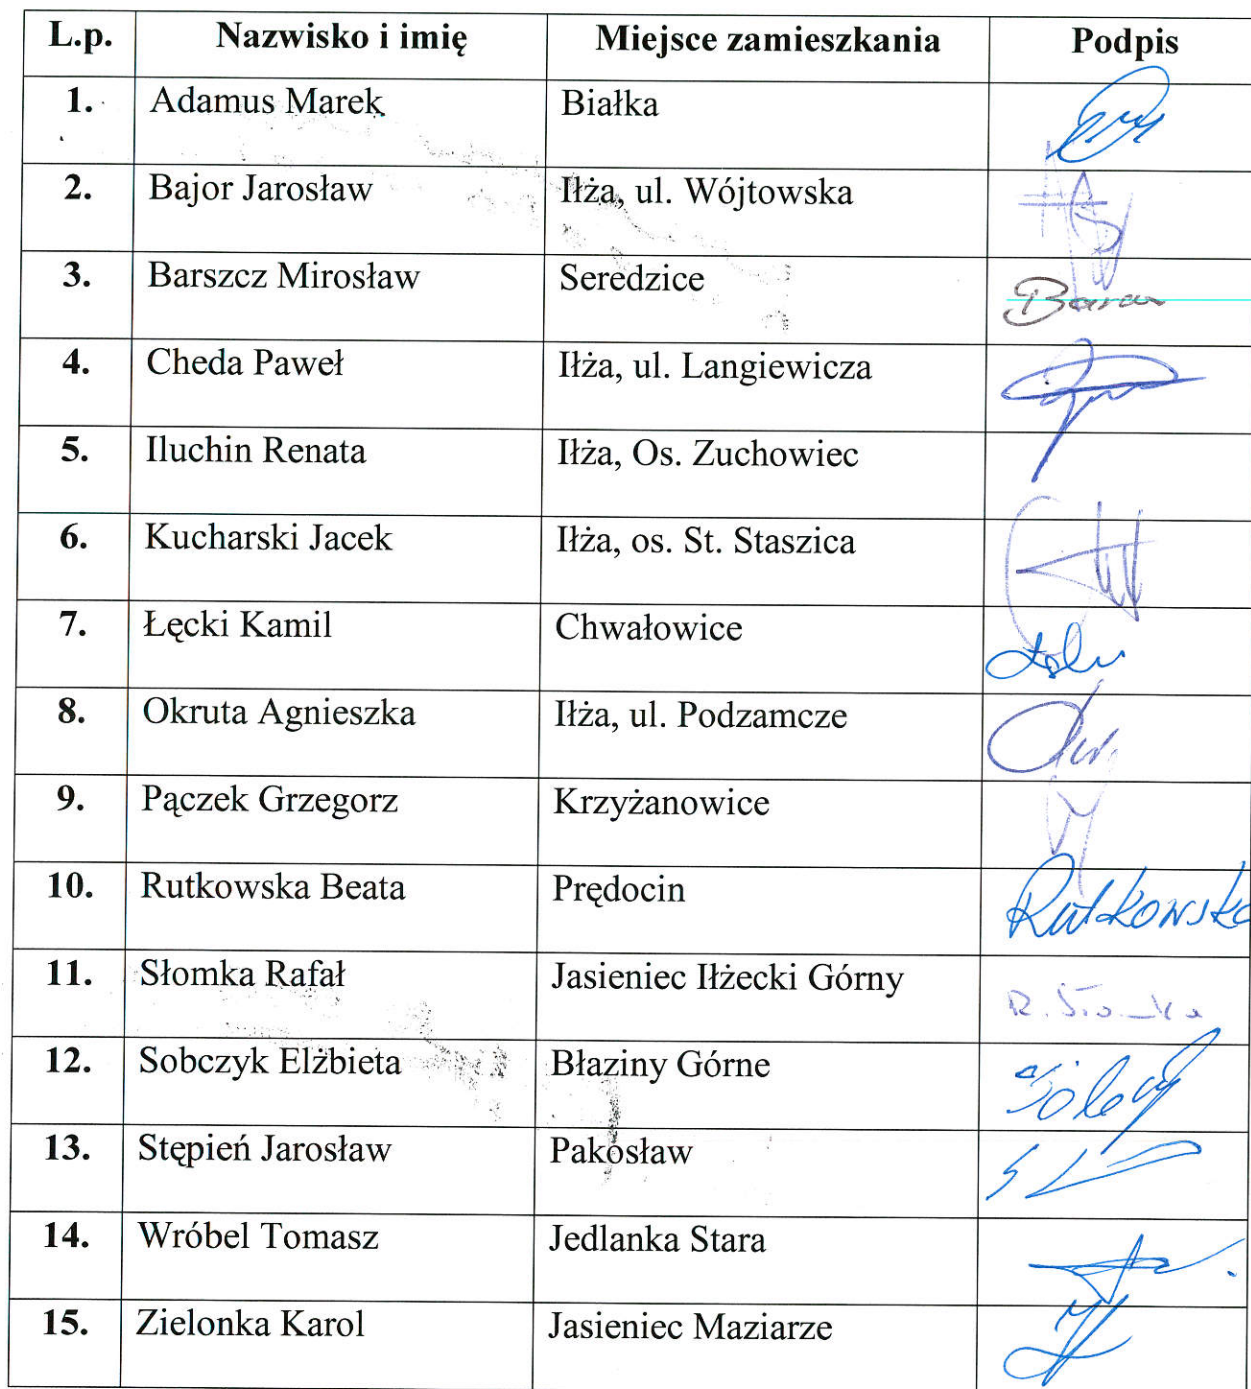 L.p. Nazwisko i imię Miejsce zamieszkania Podpis
1. Adamus Marek Białka
2. Bajor Jarosław Iłża, ul. Wójtowska
3. Barszcz Mirosław Seredzice
4. Cheda Paweł Iłża, ul. Langiewicza
5. Iluchin Renata Iłża, Os. Zuchowiec
6. Kucharski Jacek Iłża, os. St. Staszica
7. Łęcki Kamil Chwałowice
8. Okruta Agnieszka Iłża, ul. Podzamcze
9. Pączek Grzegorz Krzyżanowice
10. Rutkowska Beata Prędocin Rutkowska
11. Słomka Rafał Jasieniec Iłżecki Górny R. Słomka
12. Sobczyk Elżbieta Błaziny Górne
13. Stępień Jarosław Pakosław
14. Wróbel Tomasz Jedlanka Stara
15. Zielonka Karol Jasieniec Maziarze